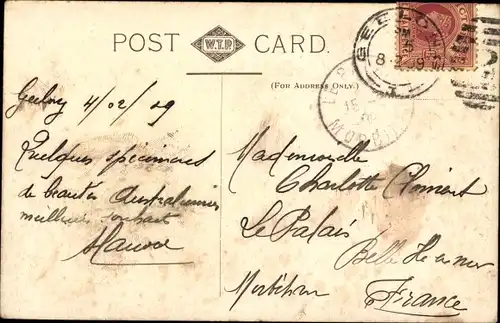 POST W.T.P. CARD.
(For Address Only.)
GEELONG
8-2 09
15
MORBI
Geelong 4/02/09
Quelques spécimens
de beautés Australiennes
meilleurs souhaits
Mademoiselle
Charlotte Clément
Le Palais
Belle Ile en mer
Morbihan
France